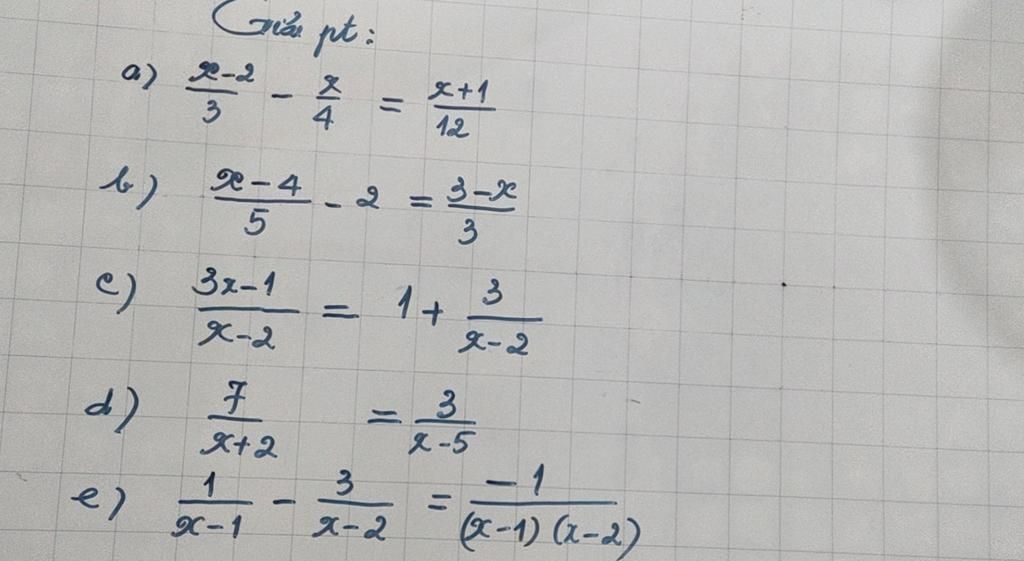 Giải pt:
a) \frac{x-2}{3} - \frac{x}{4} = \frac{x+1}{12}
b) \frac{x-4}{5} - 2 = \frac{3-x}{3}
c) \frac{3x-1}{x-2} = 1 + \frac{3}{x-2}
d) \frac{7}{x+2} = \frac{3}{x-5}
e) \frac{1}{x-1} - \frac{3}{x-2} = \frac{-1}{(x-1)(x-2)}